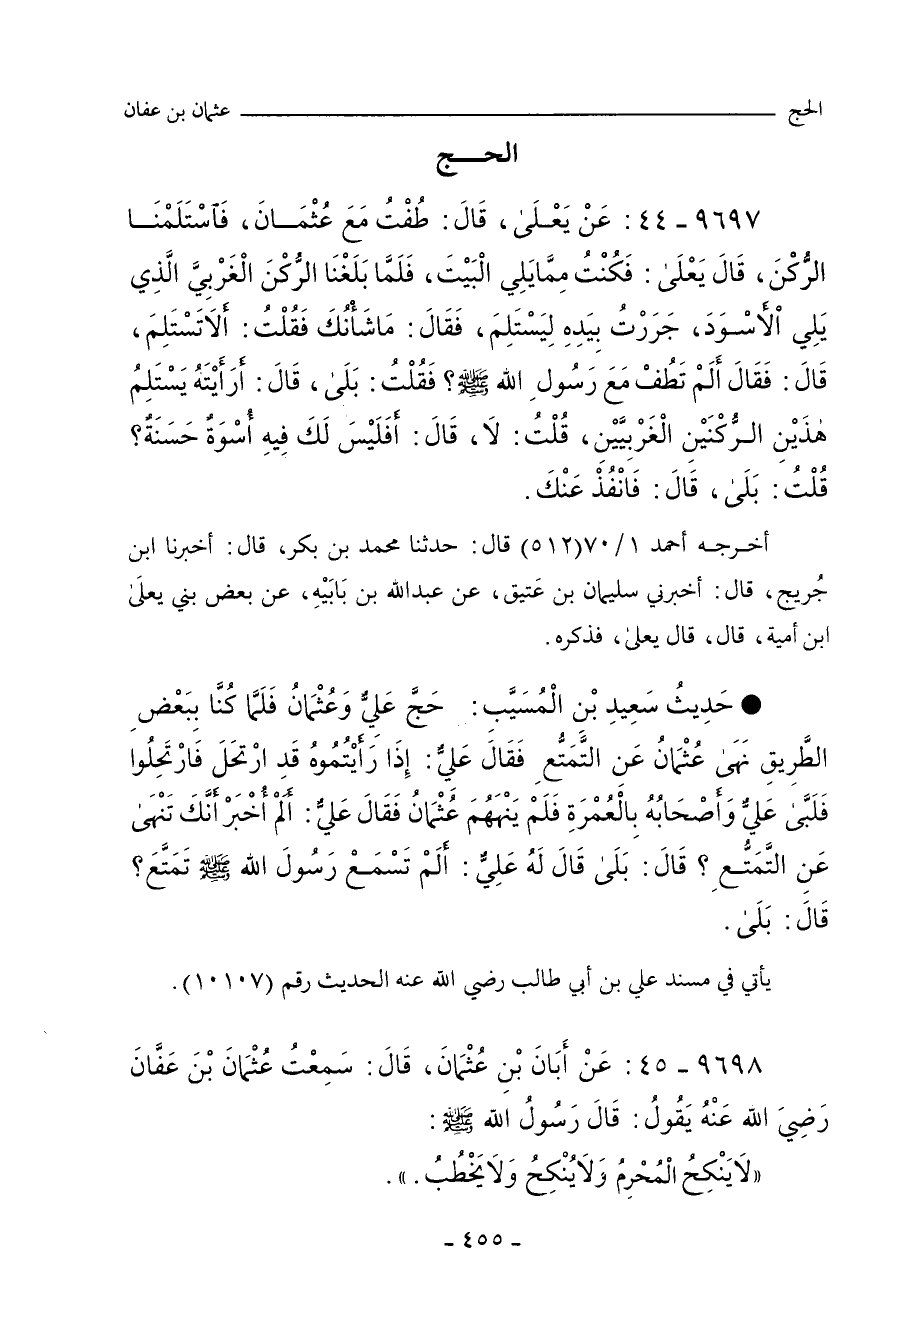 الحج ــــــــ عثمان بن عفان
الحـــج
٩٦٩٧ ـ ٤٤ : عَنْ يَعْـلَىٰ ، قَالَ : طُفْتُ مَعَ عُثْمَـانَ ، فَآسْتَلَمْنَـا
الرُّكْنَ ، قَالَ يَعْلَىٰ : فَكُنْتُ مِمَّايَلِي الْبَيْتَ ، فَلَمَّا بَلَغْنَا الرُّكْنَ الْغَرْبِيَّ الَّذِي
يَلِي اْلأَسْـوَدَ ، جَرَرْتُ بِيَدِهِ لِيَسْتَلِمَ ، فَقَالَ : مَاشَأْنُكَ فَقُلْتُ : أَلَاتَسْتَلِمَ ،
قَالَ : فَقَالَ أَلَمْ تَطُفْ مَعَ رَسُولِ الله ﷺ؟ فَقُلْتُ : بَلَىٰ ، قَالَ : أَرَأَيْتَهُ يَسْتَلِمُ
هٰذَيْنِ الـرُّكْنَيْنِ الْغَرْبِيَّيْنِ ، قُلْتُ : لَا ، قَالَ : أَفَلَيْسَ لَكَ فِيهِ أُسْوَةٌ حَسَنَةٌ؟
قُلْتُ : بَلَىٰ ، قَالَ : فَانْفُذْ عَنْكَ .
أخـرجـه أحمد ٧٠/١(٥١٢) قال : حدثنا محمد بن بكر ، قال : أخبرنا ابن
جُريج ، قال : أخبرني سليمان بن عَتيق ، عن عبدالله بن بَابَيْهِ ، عن بعض بني يعلَى
ابن أمية ، قال ، قال يعلىٰ ، فذكره .
● حَدِيثُ سَعِيدِ بْنِ الْمُسَيَّبِ : حَجَّ عَلِيٌّ وَعُثْمَانُ فَلَمَّا كُنَّا بِبَعْضِ
الطَّرِيقِ نَهَىٰ عُثْمَانُ عَنِ التَّمَتُّعِ فَقَالَ عَلِيٌّ : إِذَا رَأَيْتُمُوهُ قَدِ ارْتَحَلَ فَارْتَحِلُوا
فَلَبَّىٰ عَلِيٌّ وَأَصْحَابُهُ بِالْعُمْرَةِ فَلَمْ يَنْهَهُمْ عُثْمَانُ فَقَالَ عَلِيٌّ : أَلَمْ أُخْبَرْ أَنَّكَ تَنْهَىٰ
عَنِ التَّمَتُّـعِ ؟ قَالَ : بَلَىٰ قَالَ لَهُ عَلِيٌّ : أَلَمْ تَسْمَـعْ رَسُولَ الله ﷺ تَمَتَّعَ ؟
قَالَ : بَلَىٰ .
يأتي في مسند علي بن أبي طالب رضي الله عنه الحديث رقم (١٠١٠٧) .
٩٦٩٨ ـ ٤٥ : عَنْ أَبَانَ بْنِ عُثْمَانَ ، قَالَ : سَمِعْتُ عُثْمَانَ بْنَ عَفَّانَ
رَضِيَ الله عَنْهُ يَقُولُ : قَالَ رَسُولُ الله ﷺ :
«لَايَنْكِحُ الْمُحْرِمُ وَلَايُنْكِحُ وَلَايَخْطُبُ .» .
ـ ٤٥٥ ـ